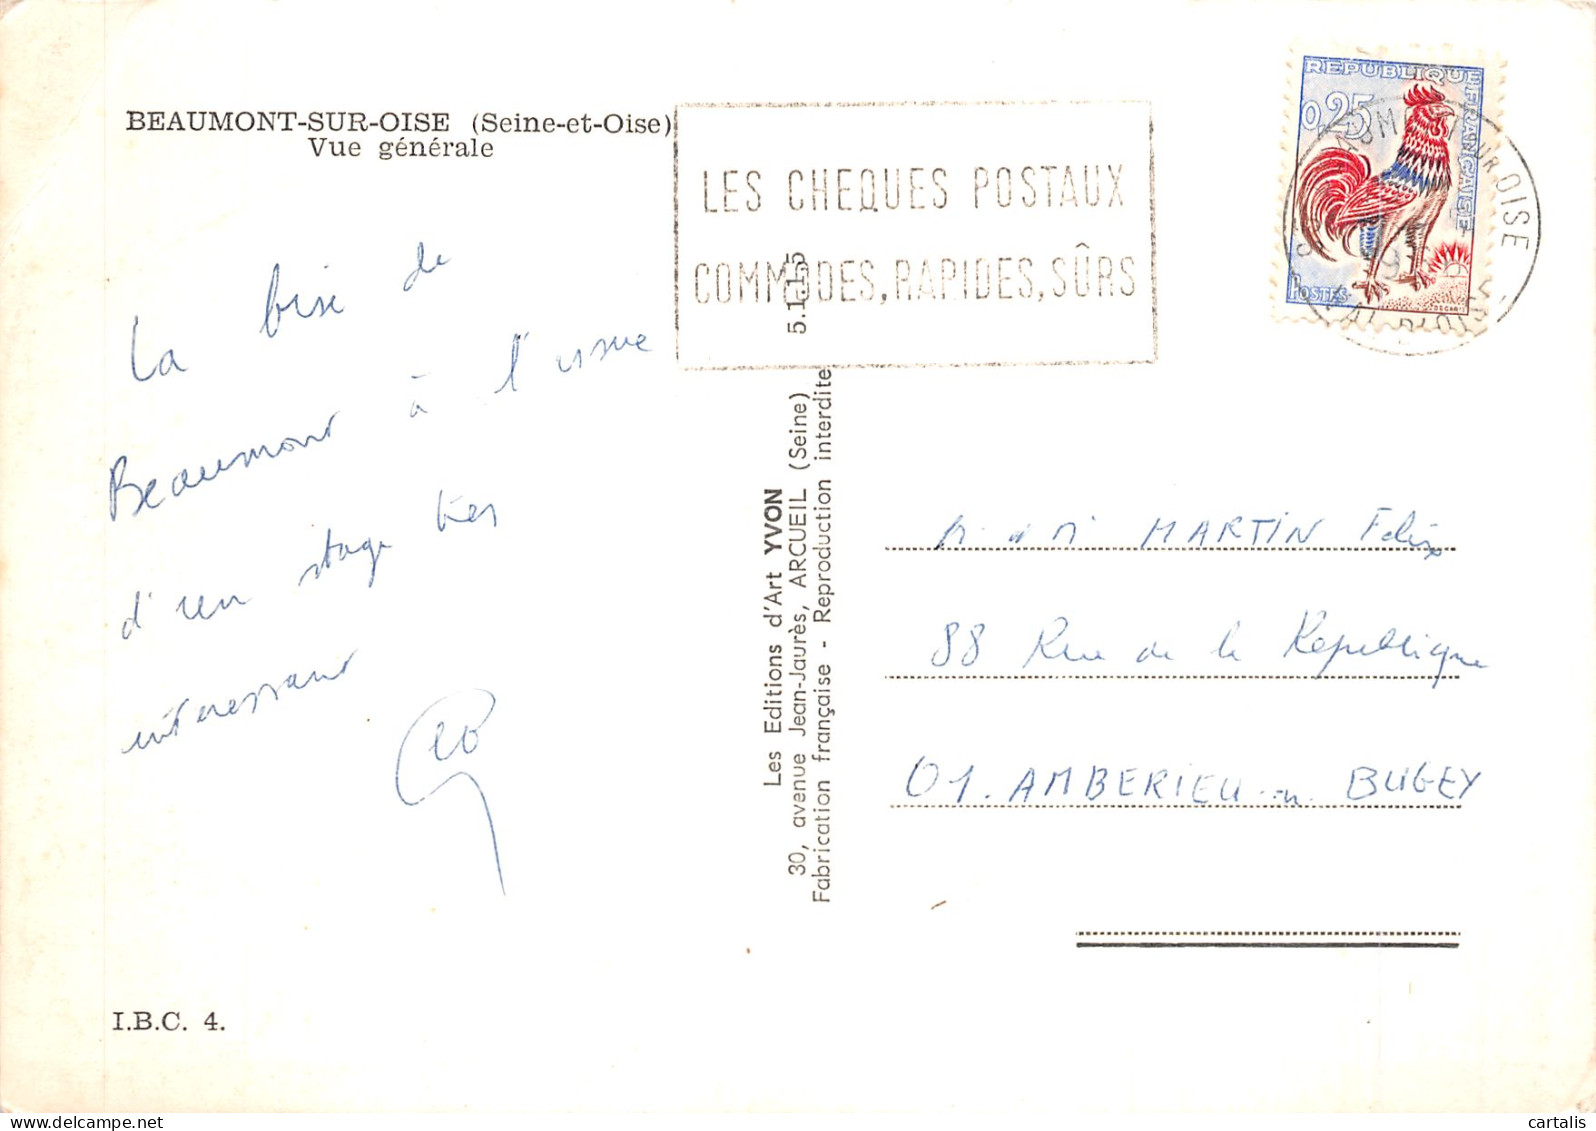 BEAUMONT-SUR-OISE (Seine-et-Oise)
Vue générale
LES CHEQUES POSTAUX
COMMODES, RAPIDES, SÛRS
REPUBLIQUE FRANÇAISE
0,25
POSTES
DECARIS
SUR OISE
VAL D'OISE
La bise de
Beaumont à l'issue
d'un stage très
intéressant
5.1.1.55
Les Editions d'Art YVON
30, avenue Jean-Jaurès, ARCUEIL (Seine)
Fabrication française - Reproduction interdite
MARTIN Félix
88 Rue de la République
01. AMBERIEU en BUGEY
I.B.C. 4.
delcampe.net
cartalis